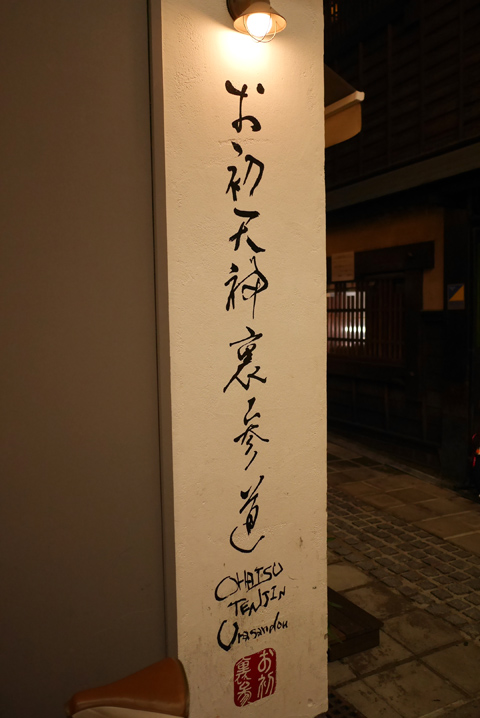 お初天神裏参道
OHATSU
TENJIN
Urasandou
お初
裏参